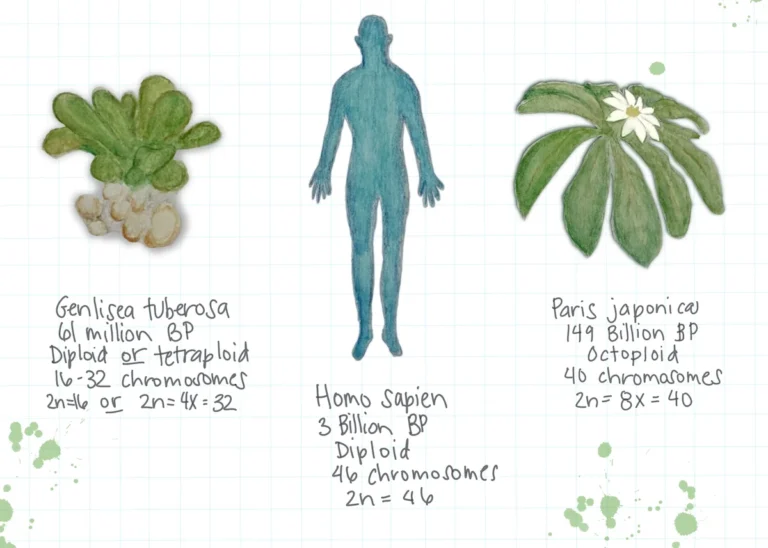 Genlisea tuberosa
61 million BP
Diploid or tetraploid
16-32 chromosomes
2n=16 or 2n=4x=32
Homo sapien
3 Billion BP
Diploid
46 chromosomes
2n = 46
Paris japonica
149 Billion BP
Octoploid
40 chromosomes
2n = 8x = 40